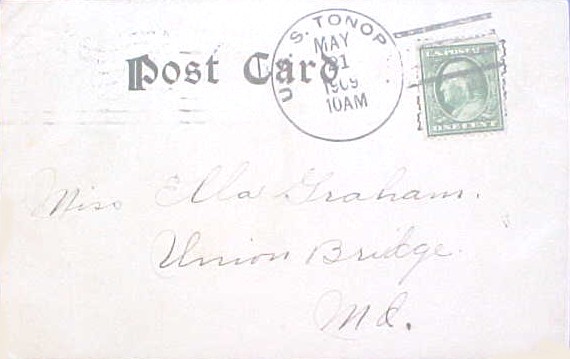 U. S. S. TONOP
MAY
31
1909
10AM
U.S. POSTAGE
ONE CENT
Post Card
Miss Ella Graham.
Union Bridge.
Md.